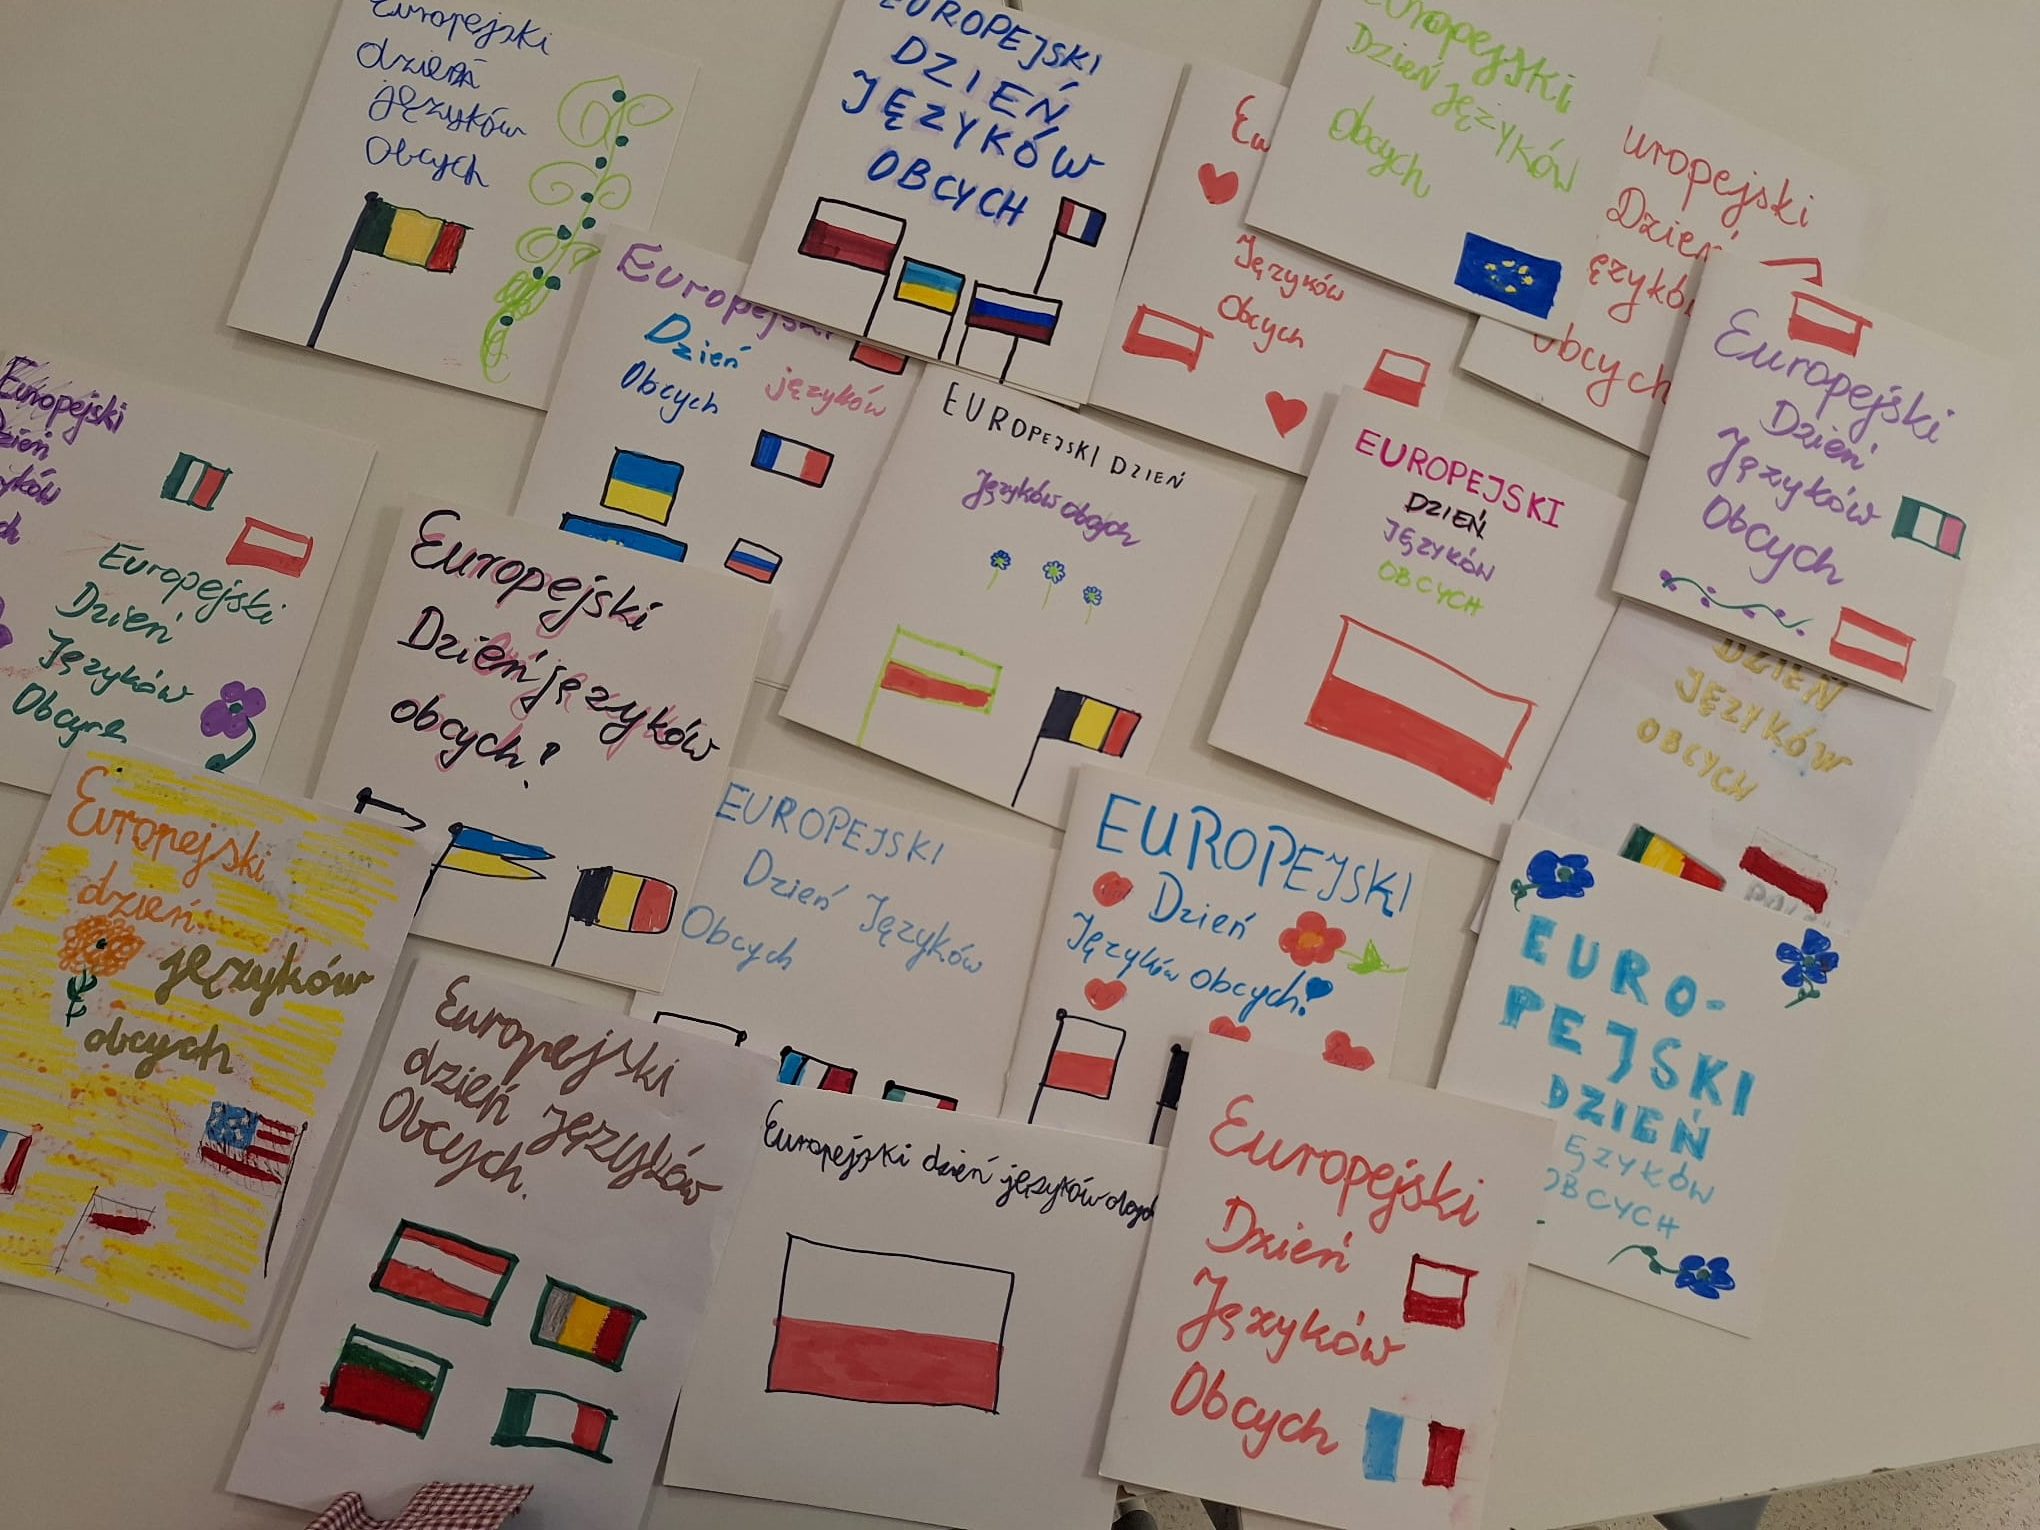 Europejski
dzień
języków
Obcych
EUROPEJSKI
DZIEŃ
JĘZYKÓW
OBCYCH
Europejski
Dzień Języków
Obcych
Języków
Obcych
uropejski
Dzień
ęzykó
Obcych
Europejski
Dzień
języków
Obcych
Europejśki
Dzień
Języków
Obcych
EUROPEJSKI DZIEŃ
Języków obcych
EUROPEJSKI
DZIEŃ
JĘZYKÓW
OBCYCH
Europejski
Dzień
yków
ch
Europejski
Dzień
Języków
Europejski
Dzień języków
obcych!
DZIEŃ
JĘZYKÓW
OBCYCH
Europejski
dzień
języków
obcych
EUROPEJSKI
Dzień Języków
Obcych
EUROPEJSKI
Dzień
Języków obcych!
EURO-
PEJSKI
DZIEŃ
ĘZYKÓW
OBCYCH
Europejski
dzień języków
Obcych.
Europejski dzień języków
Europejski
Dzień
Języków
Obcych